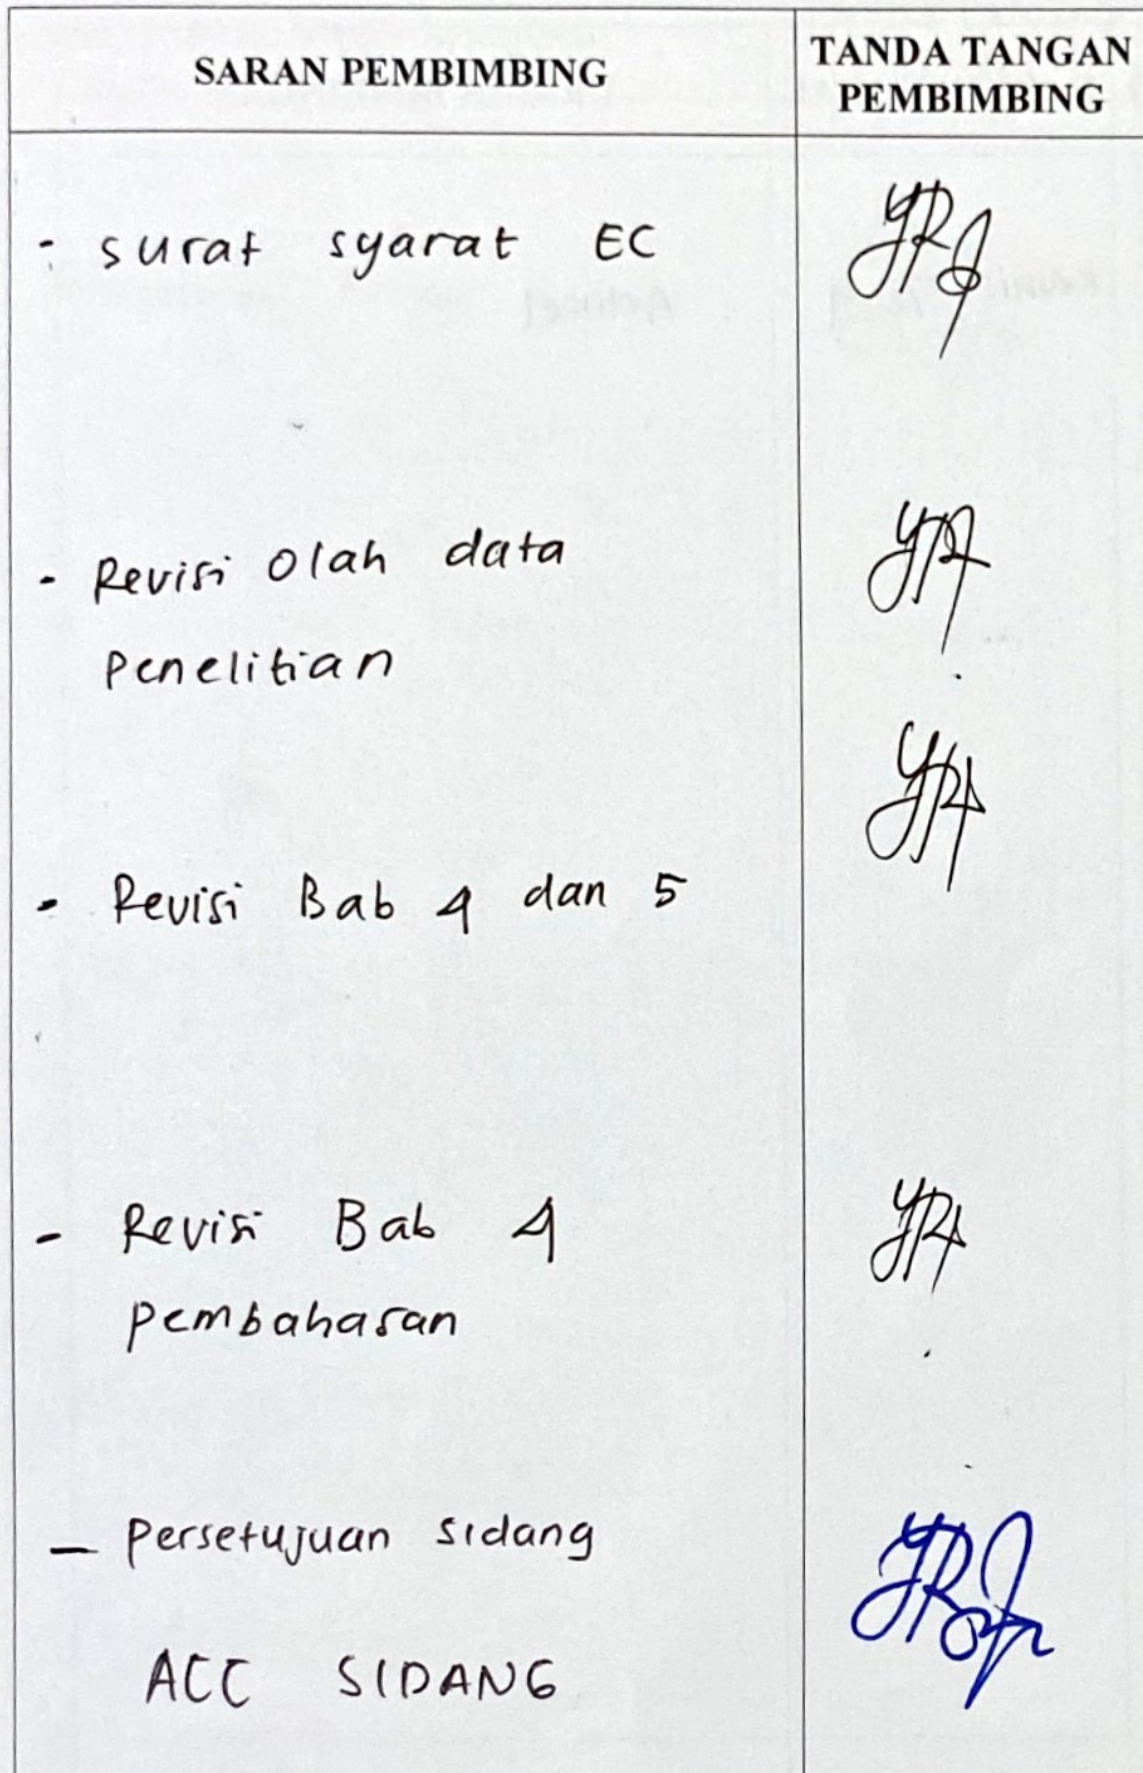 SARAN PEMBIMBING
TANDA TANGAN
PEMBIMBING
- surat syarat EC
- Revisi Olah data
penelitian
- Revisi Bab 4 dan 5
- Revisi Bab 4
pembahasan
- Persetujuan sidang
ACC SIDANG